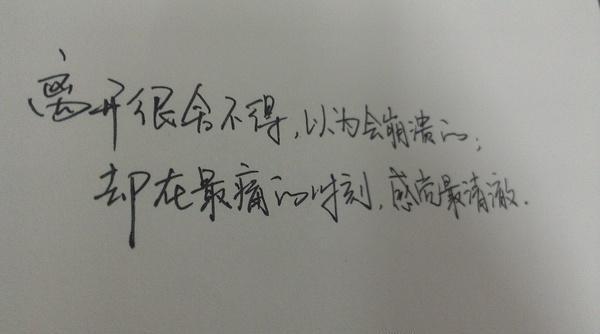 离开很舍不得,以为会崩溃的;
却在最痛的时刻,感觉最清澈.